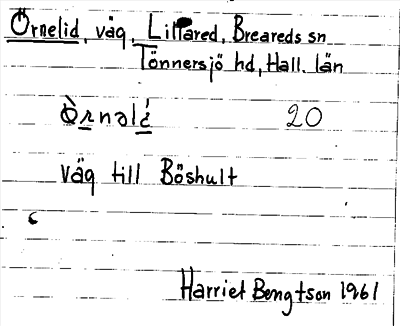 Örnelid, väg, Lillared, Breareds sn
Tönnersjö hd, Hall. län
Ö̀rnəlé 20
väg till Böshult
Harriet Bengtson 1961